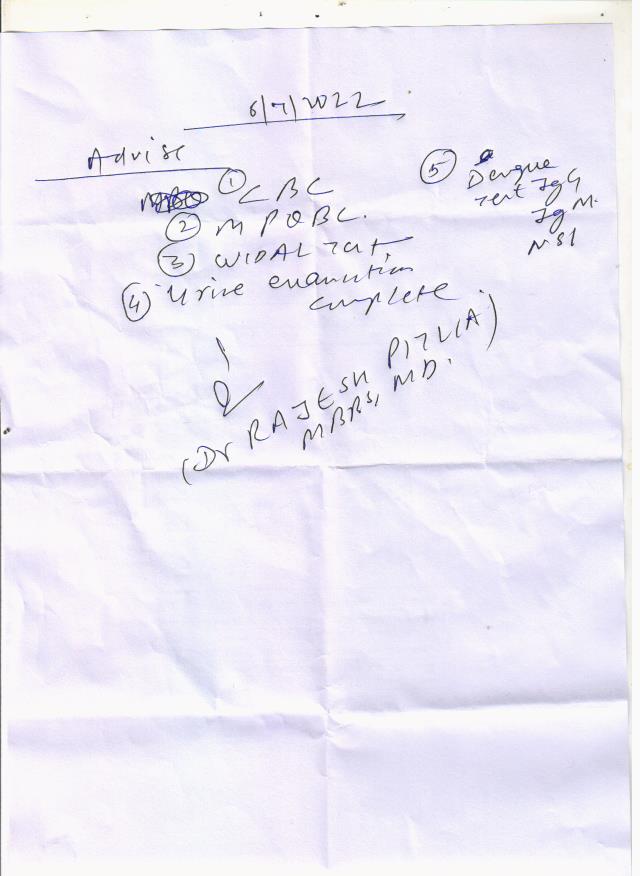 6/7/2022
Advise
① CBC
② MPQBC.
③ WIDAL Test
④ Urine examination
complete.
⑤ Dengue
Test IgG
IgM.
NS1
(Dr RAJESH PITLIA)
MBBS, MD.